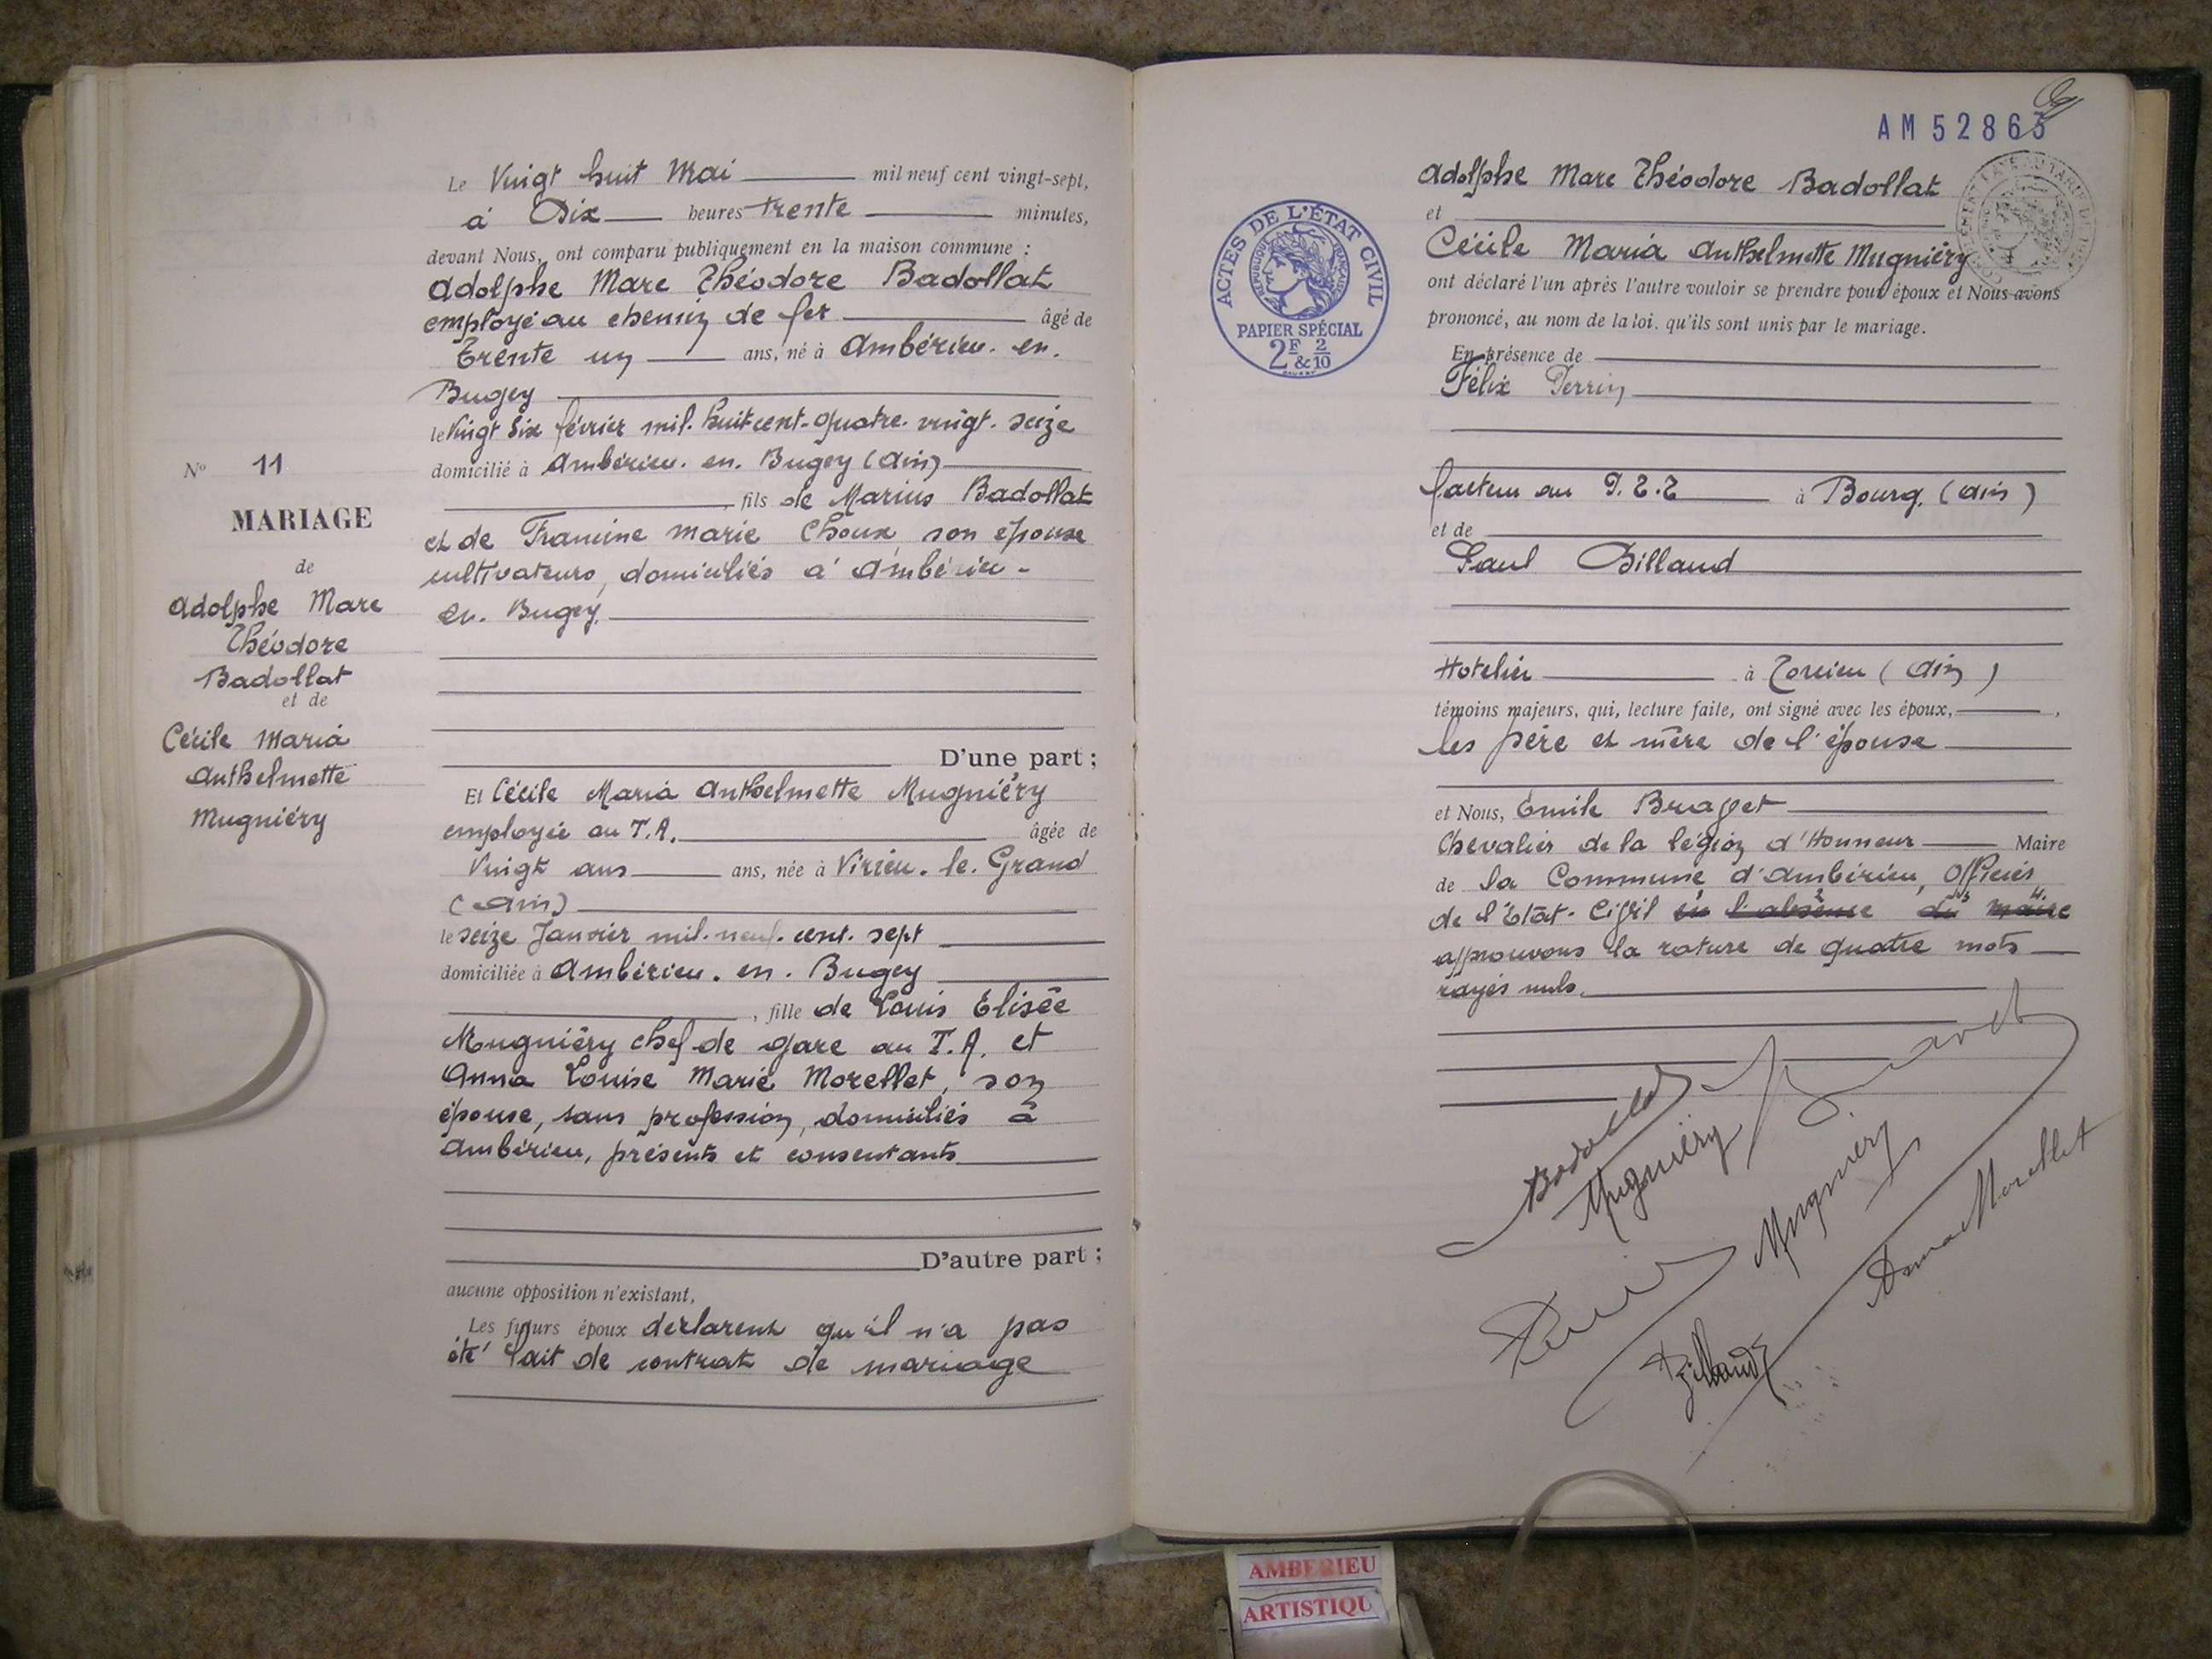 Le Vingt huit Mai mil neuf cent vingt-sept,
à Dix heures trente minutes,
devant Nous, ont comparu publiquement en la maison commune :
Adolphe Marc Théodore Badollat
employé au chemin de fer âgé de
Trente un ans, né à Ambérieu. en.
Bugey
le Vingt Six février mil. huit cent. quatre. vingt. seize
domicilié à Ambérieu. en. Bugey (Ain)
, fils de Marius Badollat
et de Francine Marie Choux, son épouse
cultivateurs, domiciliés à Ambérieu -
en. Bugey.
D'une part ;
Et Cécile Maria Anthelmette Mugniéry
employée au T.A. âgée de
Vingt ans ans, née à Virieu. le. Grand
(Ain)
le seize Janvier mil. neuf. cent. sept
domiciliée à Ambérieu. en. Bugey
, fille de Louis Elisée
Mugniéry chef de gare au T.A. et
Anna Louise Marie Morellet, son
épouse, sans profession, domiciliés à
Ambérieu, présents et consentants
D'autre part ;
aucune opposition n'existant,
Les futurs époux déclarent qu'il n'a pas
été fait de contrat de mariage
No 11
MARIAGE
de
Adolphe Marc
Théodore
Badollat
et de
Cécile Maria
Anthelmette
Mugniéry
AM 52863
Adolphe Marc Théodore Badollat
et
Cécile Maria Anthelmette Mugniéry
ont déclaré l'un après l'autre vouloir se prendre pour époux et Nous avons
prononcé, au nom de la loi, qu'ils sont unis par le mariage.
En présence de
Félix Perrin
facteur au P.T.T à Bourg. (Ain)
et de
Paul Billaud
Hotelier à Torcieu (Ain)
témoins majeurs, qui, lecture faite, ont signé avec les époux, ,
les père et mère de l'épouse
et Nous, Emile Bravet
Chevalier de la légion d'Honneur Maire
de la Commune d'Ambérieu, Officier
de l'Etat. Civil en l'absence du maire
approuvons la rature de quatre mots
rayés nuls.
Badollat
Mugniéry
Bravet
Mugniery
Anna Morellet
Perrin
Billaud
ACTES DE L'ÉTAT CIVIL
RÉPUBLIQUE FRANÇAISE
PAPIER SPÉCIAL
2F & 2/10
AMBERIEU
ARTISTIQU